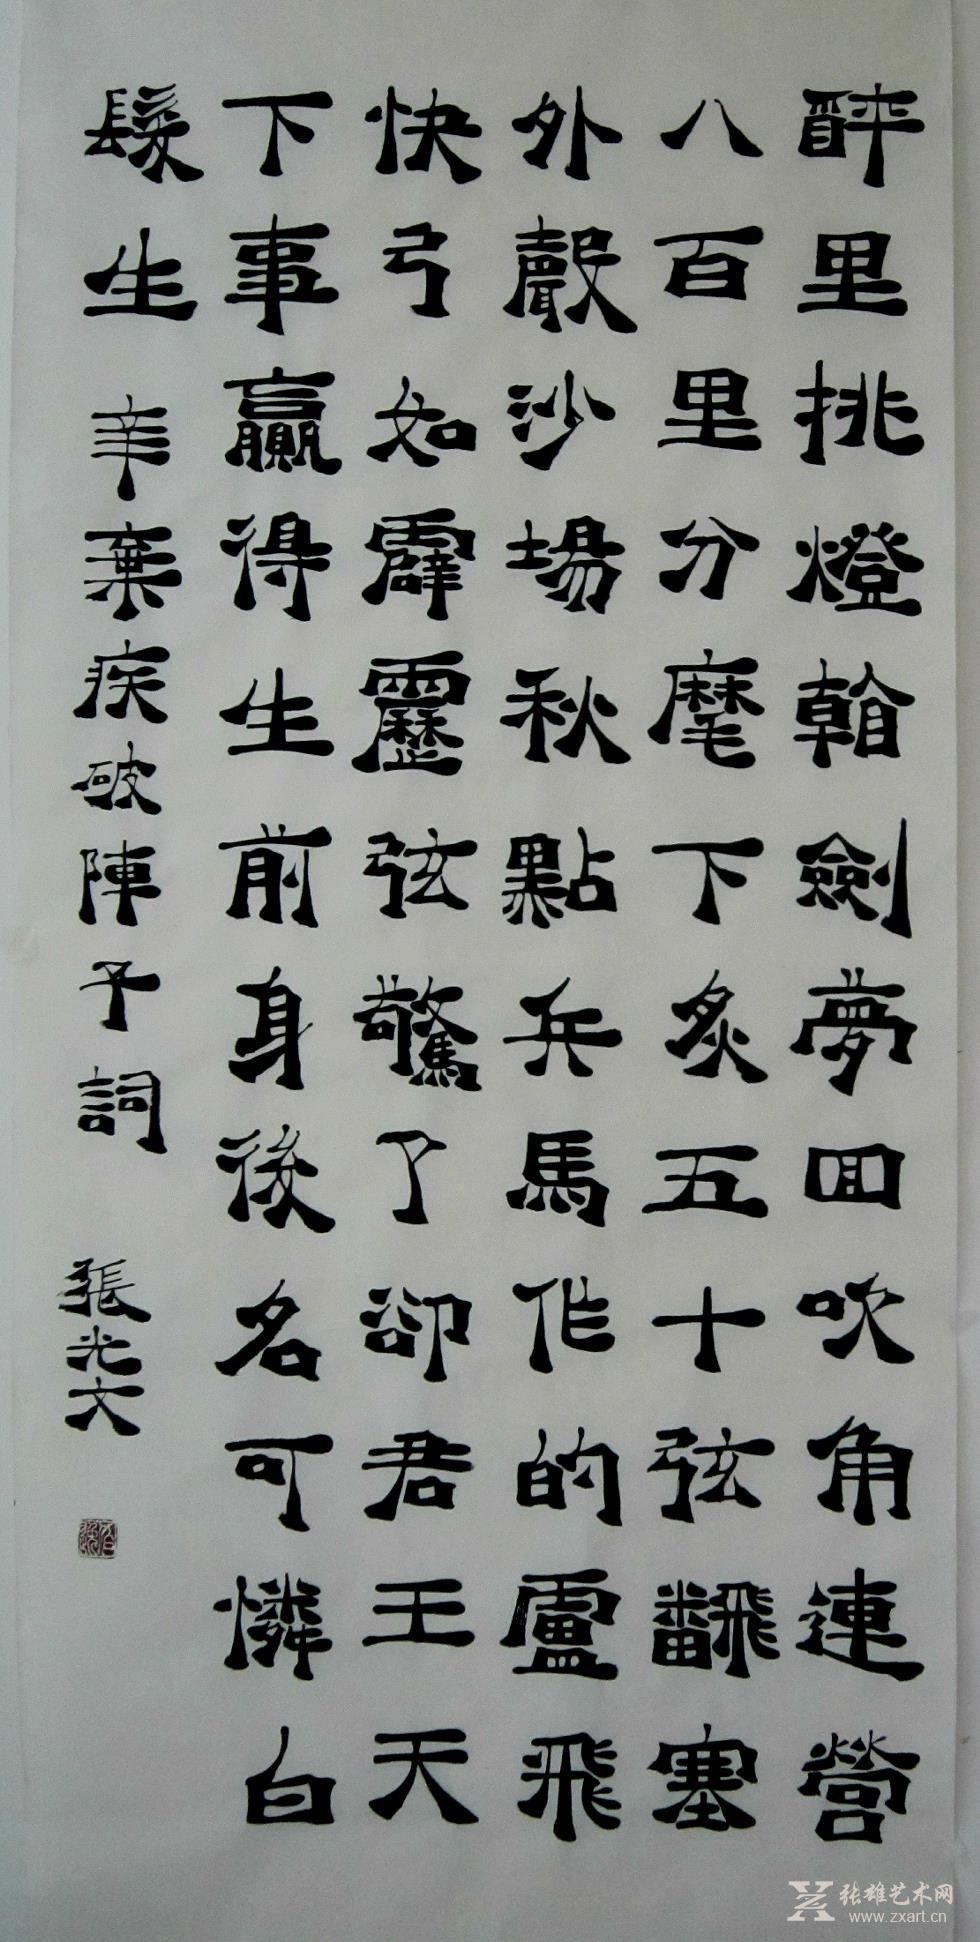 醉里挑燈看劍夢回吹角連營
八百里分麾下炙五十弦飜塞
外聲沙場秋點兵馬作的盧飛
快弓如霹靂弦驚了卻君王天
下事贏得生前身後名可憐白
髮生 辛棄疾破陣子詞 張光文
张雄艺术网
www.zxart.cn